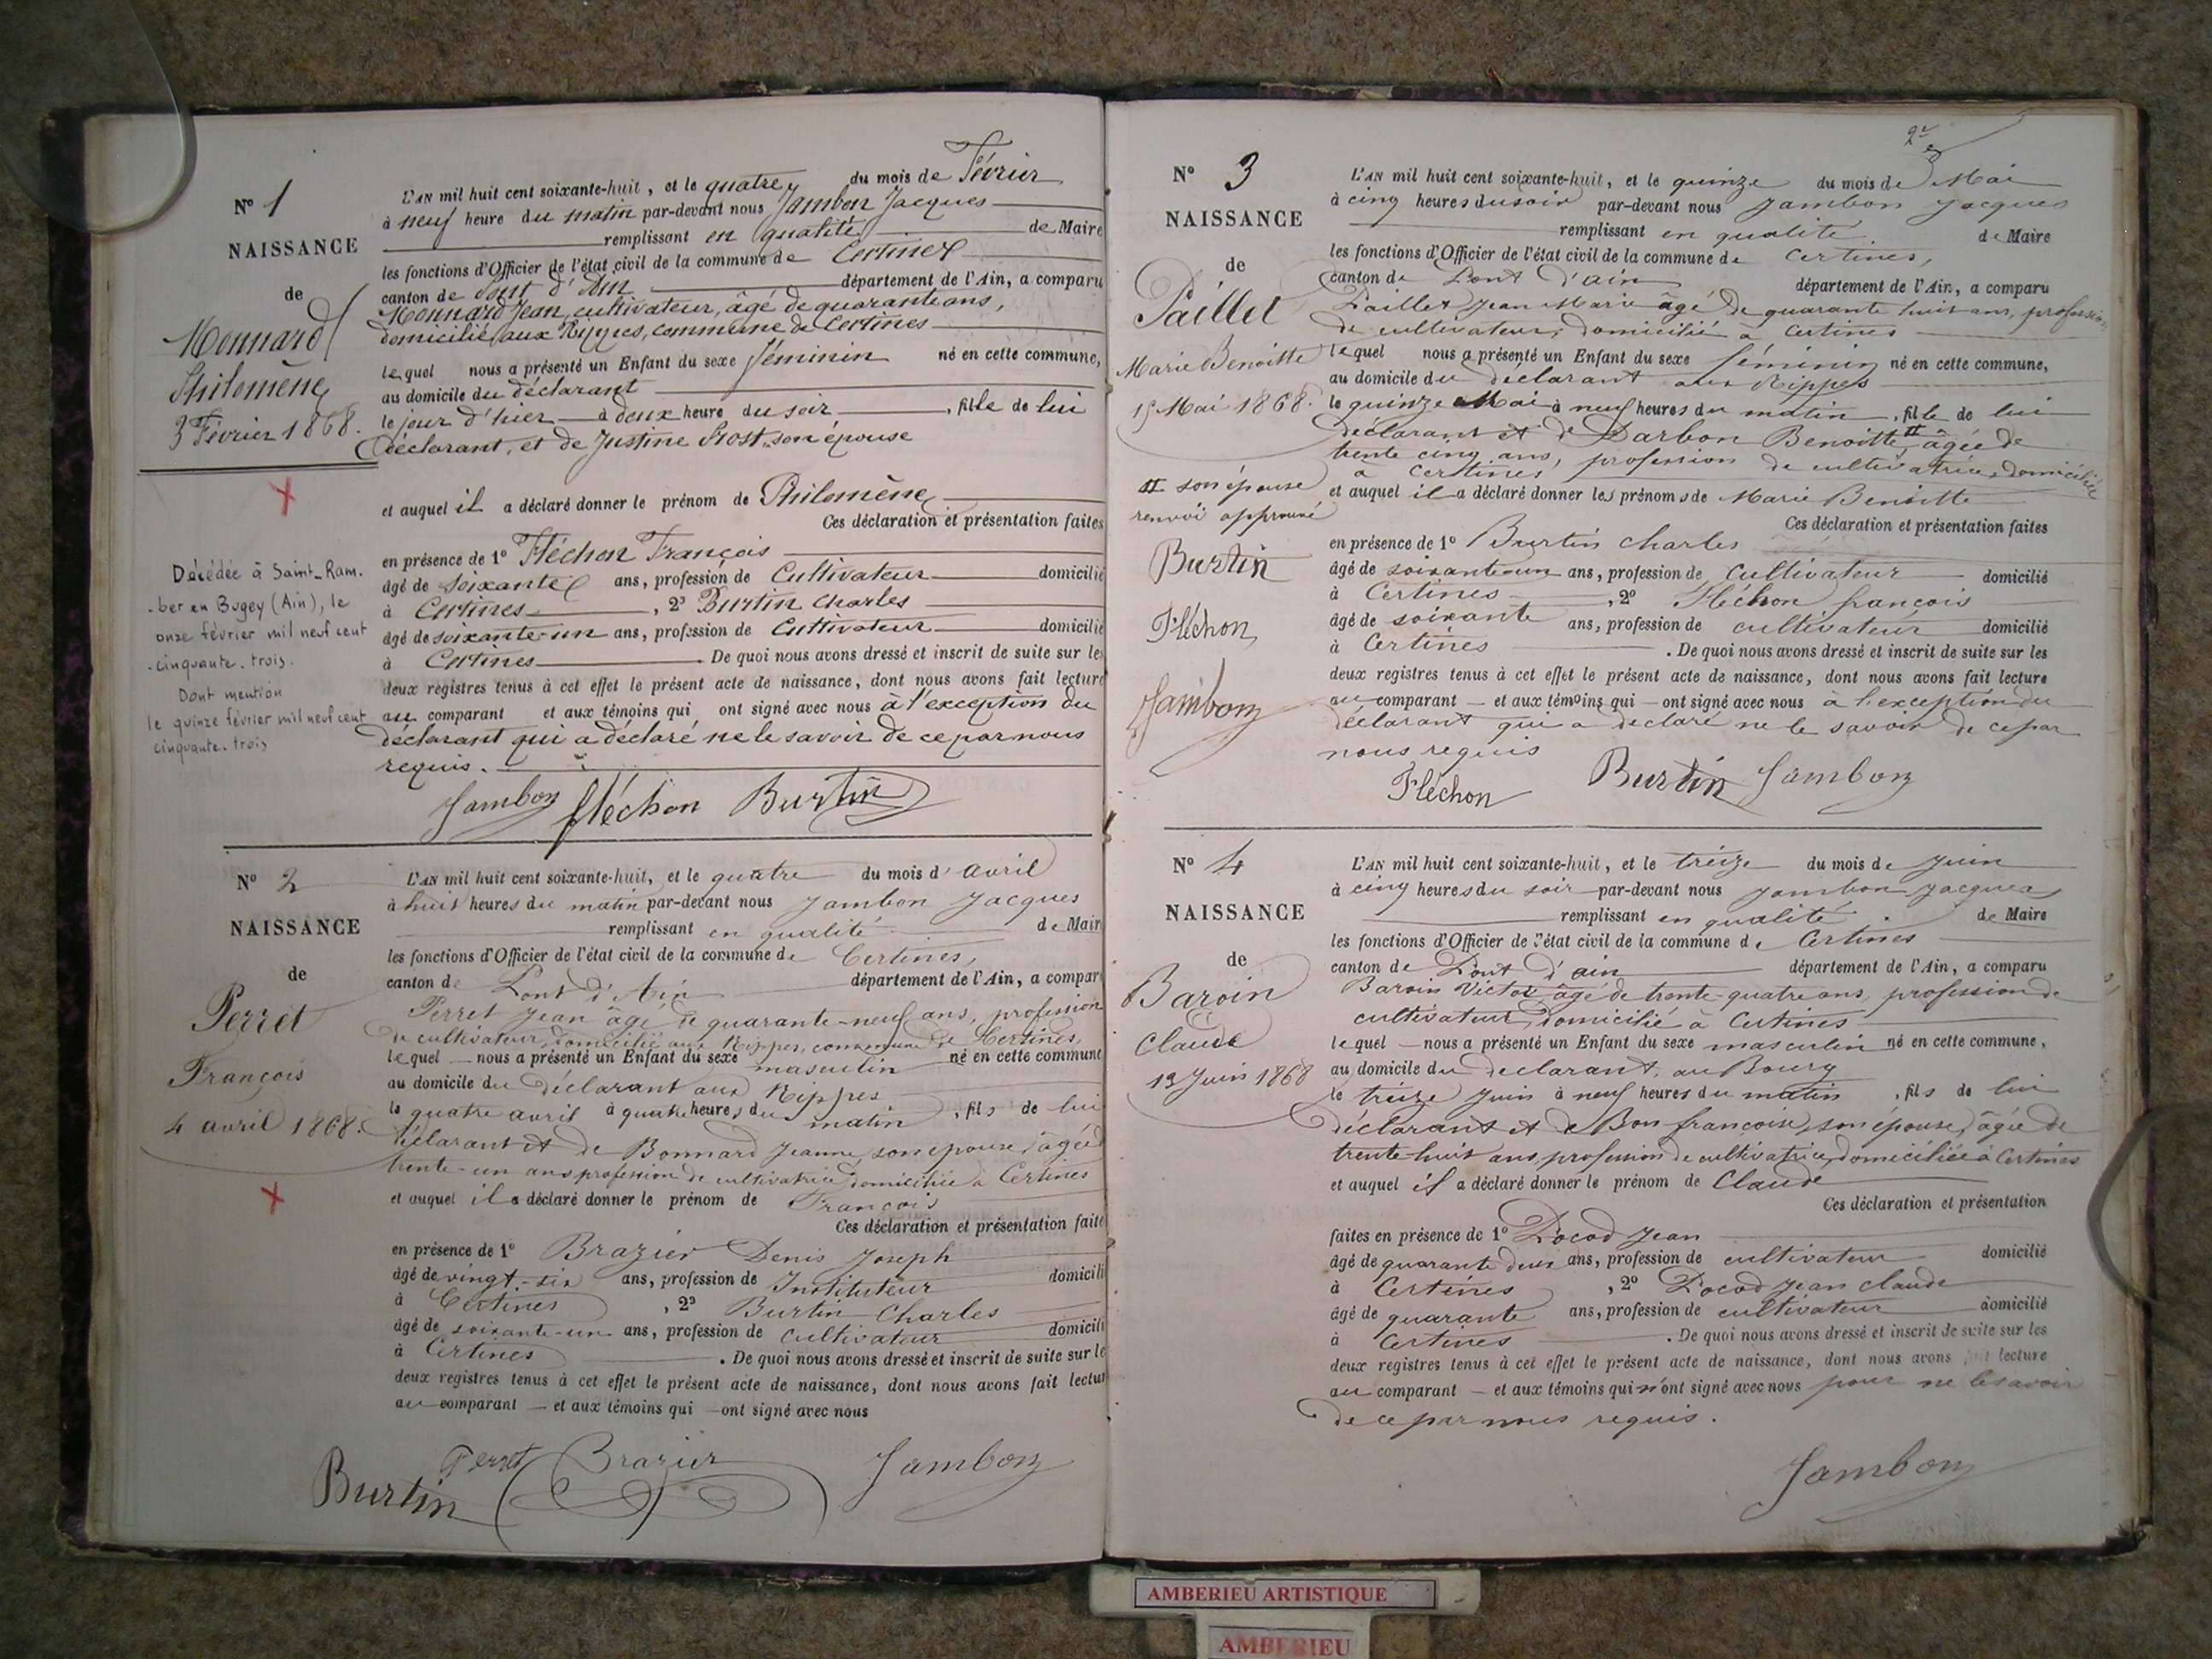 N° 1
NAISSANCE
de
Monnard
Philomène
3 Février 1868.
Décédée à Saint-Ram-
-ber en Bugey (Ain), le
onze février mil neuf cent
-cinquante-trois.
Dont mention
le quinze février mil neuf cent
cinquante-trois
L'AN mil huit cent soixante-huit, et le quatre du mois de Février
à neuf heure du matin par-devant nous Jambon Jacques
remplissant en qualité de Maire
les fonctions d'Officier de l'état civil de la commune de Certines
canton de Pont d'Ain département de l'Ain, a comparu
Monnard Jean, cultivateur, âgé de quarante ans,
domicilié aux Rippes, commune de Certines
lequel nous a présenté un Enfant du sexe féminin né en cette commune,
au domicile du déclarant
le jour d'hier à deux heure du soir, fille de lui
déclarant, et de Justine Prost, son épouse
et auquel il a déclaré donner le prénom de Philomène
Ces déclaration et présentation faites
en présence de 1° Fléchon François
âgé de soixante ans, profession de Cultivateur domicilié
à Certines, 2° Burtin Charles
âgé de soixante-un ans, profession de Cultivateur domicilié
à Certines. De quoi nous avons dressé et inscrit de suite sur les
deux registres tenus à cet effet le présent acte de naissance, dont nous avons fait lecture
au comparant et aux témoins qui ont signé avec nous à l'exception du
déclarant qui a déclaré ne le savoir de ce par nous
requis.
Jambon fléchon Burtin
N° 2
NAISSANCE
de
Perret
François
4 avril 1868.
L'AN mil huit cent soixante-huit, et le quatre du mois d'avril
à huit heures du matin par-devant nous Jambon Jacques
remplissant en qualité de Mair
les fonctions d'Officier de l'état civil de la commune de Certines,
canton de Pont d'Ain département de l'Ain, a compar
Perret Jean âgé de quarante-neuf ans, profession
de cultivateur, domicilié aux Rippes, commune de Certines,
lequel nous a présenté un Enfant du sexe masculin né en cette commune
au domicile du déclarant aux Rippes
le quatre avril à quatre heures du matin, fils de lui
déclarant et de Bonnard Jeanne, son épouse, âgée
trente-un ans profession de cultivatrice domiciliée à Certines
et auquel il a déclaré donner le prénom de François
Ces déclaration et présentation faite
en présence de 1° Brazier Denis Joseph
âgé de vingt-six ans, profession de Instituteur domicili
à Certines, 2° Burtin Charles
âgé de soixante-un ans, profession de cultivateur domicili
à Certines. De quoi nous avons dressé et inscrit de suite sur le
deux registres tenus à cet effet le présent acte de naissance, dont nous avons fait lectur
au comparant et aux témoins qui ont signé avec nous
Burtin Perret Brazier Jambon
N° 3
NAISSANCE
de
Paillet
Marie Benoitte
15 Mai 1868.
II son épouse
renvoi approuvé
Burtin
Fléchon
Jambon
L'AN mil huit cent soixante-huit, et le quinze du mois de Mai
à cinq heures du soir par-devant nous Jambon Jacques
remplissant en qualité de Maire
les fonctions d'Officier de l'état civil de la commune de Certines,
canton de Pont d'ain département de l'Ain, a comparu
Paillet Jean Marie âgé de quarante huit ans, profession
de cultivateur, domicilié à Certines
lequel nous a présenté un Enfant du sexe féminin né en cette commune,
au domicile du déclarant aux Rippes
le quinze Mai à neuf heures du matin, fille de lui
déclarant et de Darbon Benoitte II âgée de
trente cinq ans, profession de cultivatrice, domiciliée
à Certines
et auquel il a déclaré donner les prénoms de Marie Benoitte
Ces déclaration et présentation faites
en présence de 1° Burtin Charles
âgé de soixante un ans, profession de Cultivateur domicilié
à Certines, 2° Fléchon françois
âgé de soixante ans, profession de cultivateur domicilié
à Certines. De quoi nous avons dressé et inscrit de suite sur les
deux registres tenus à cet effet le présent acte de naissance, dont nous avons fait lecture
au comparant et aux témoins qui ont signé avec nous à l'exception du
déclarant qui a déclaré ne le savoir de ce par
nous requis
Fléchon Burtin Jambon
N° 4
NAISSANCE
de
Baroin
Claude
13 Juin 1868
L'AN mil huit cent soixante-huit, et le treize du mois de Juin
à cinq heures du soir par-devant nous Jambon Jacques
remplissant en qualité de Maire
les fonctions d'Officier de l'état civil de la commune de Certines
canton de Pont d'ain département de l'Ain, a comparu
Baroin Victor, âgé de trente-quatre ans, profession de
cultivateur, domicilié à Certines
lequel nous a présenté un Enfant du sexe masculin né en cette commune,
au domicile du déclarant, au Bourg
le treize Juin à neuf heures du matin, fils de lui
déclarant et de Bon françoise, son épouse, âgée de
trente-huit ans, profession de cultivatrice, domiciliée à Certines
et auquel il a déclaré donner le prénom de Claude
Ces déclaration et présentation
faites en présence de 1° Pocod Jean
âgé de quarante deux ans, profession de cultivateur domicilié
à Certines, 2° Pocod Jean Claude
âgé de quarante ans, profession de cultivateur domicilié
à Certines. De quoi nous avons dressé et inscrit de suite sur les
deux registres tenus à cet effet le présent acte de naissance, dont nous avons fait lecture
au comparant et aux témoins qui n'ont signé avec nous pour ne le savoir
de ce par nous requis.
Jambon
AMBERIEU ARTISTIQUE
AMBERIEU